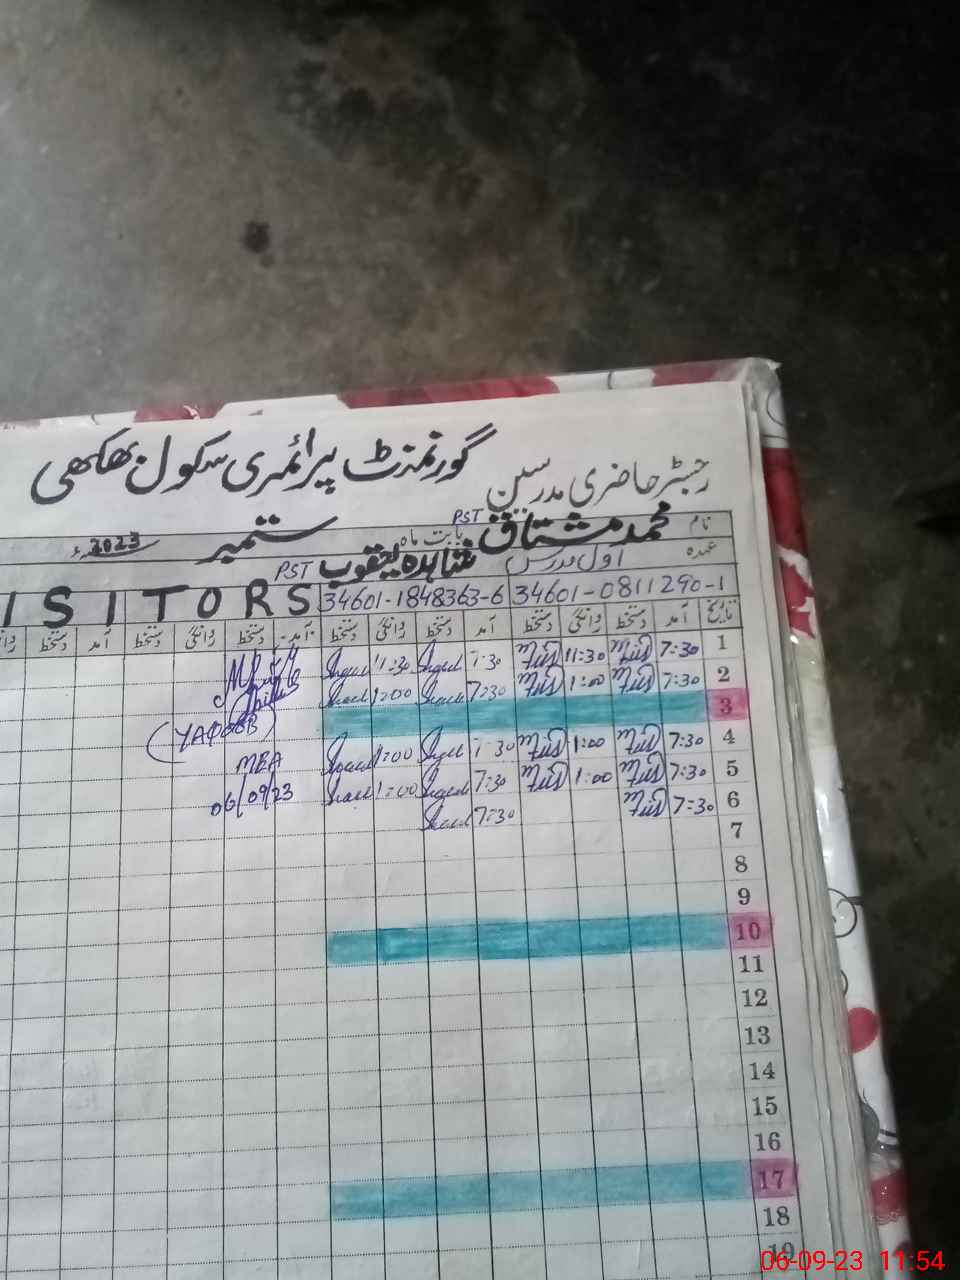 گورنمنٹ پرائمری سکول بھکھی
رجسٹر حاضری مدرسین
نام محمد مشتاق PST بابت ماہ ستمبر 2023ء
عہدہ اول مدرس شاہدہ یعقوب PST
34601-0811290-1
34601-1848363-6
ISITORS
تاریخ آمد دستخط روانگی دستخط آمد دستخط روانگی دستخط آمد دستخط روانگی دستخط آمد دستخط
1 7:30 11:30 7:30 11:30
2 7:30 1:00 7:30 12:00
3
4 7:30 1:00 7:30 1:00
5 7:30 1:00 7:30 1:00
6 7:30 7:30
(YAQOOB)
MEA
06/09/23
7
8
9
10
11
12
13
14
15
16
17
18
19
06-09-23 11:54